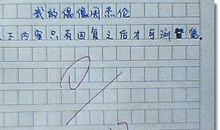 我的偶像周杰伦
下内容只有回复之后才可浏覽。